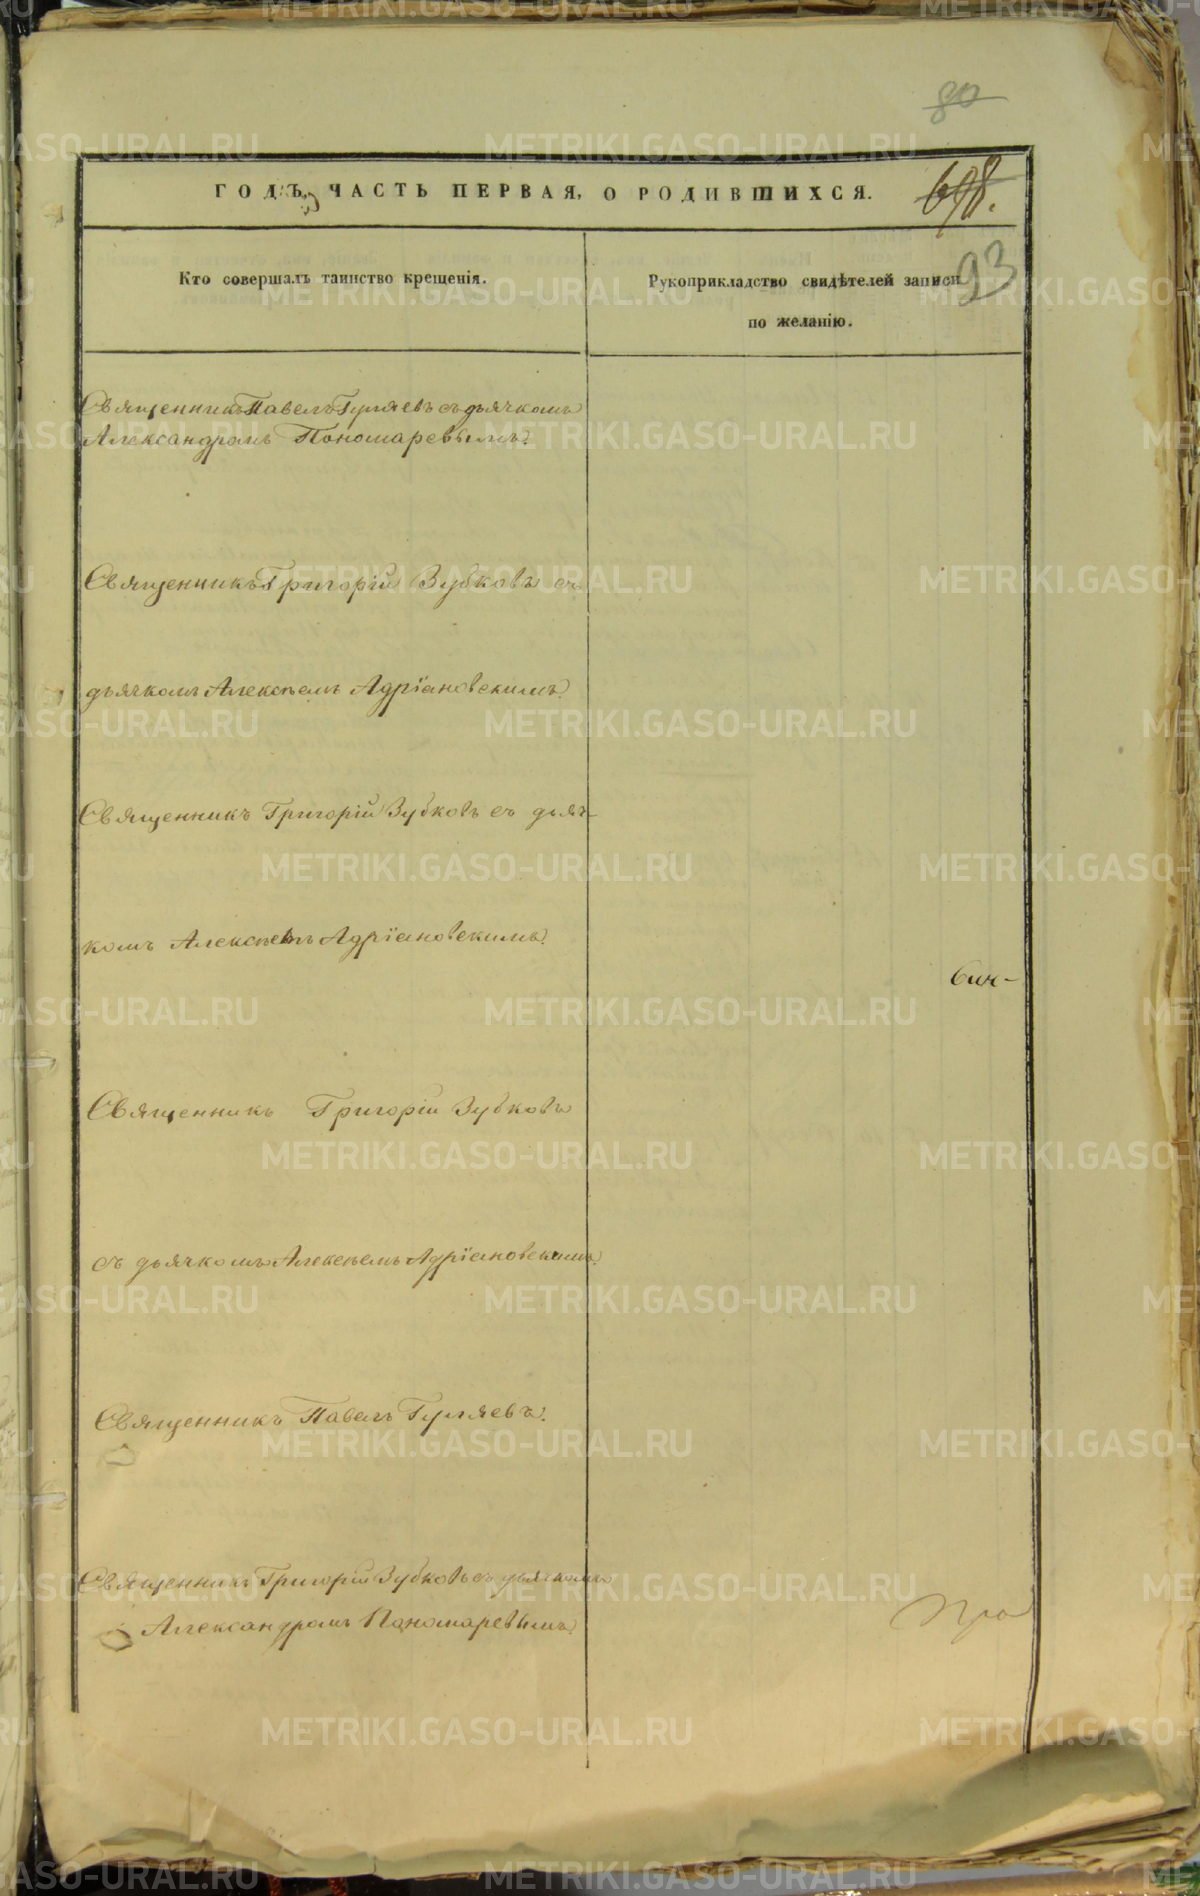 80
ГОДЪ, ЧАСТЬ ПЕРВАЯ, О РОДИВШИХСЯ.
698.
93
Кто совершалъ таинство крещенія.
Рукоприкладство свидѣтелей записи
по желанію.
Священникъ Павелъ Гуляевъ съ дьячкомъ
Александромъ Пономаревымъ.
Священникъ Григорій Зубковъ съ
дьячкомъ Алексѣемъ Адріановскимъ.
Священникъ Григорій Зубковъ съ дьяч-
комъ Алексѣемъ Адріановскимъ.
Священникъ Григорій Зубковъ
съ дьячкомъ Алексѣемъ Адріановскимъ.
Священникъ Павелъ Гуляевъ.
Священникъ Григорій Зубковъ съ дьячкомъ
Александромъ Пономаревымъ.
METRIKI.GASO-URAL.RU